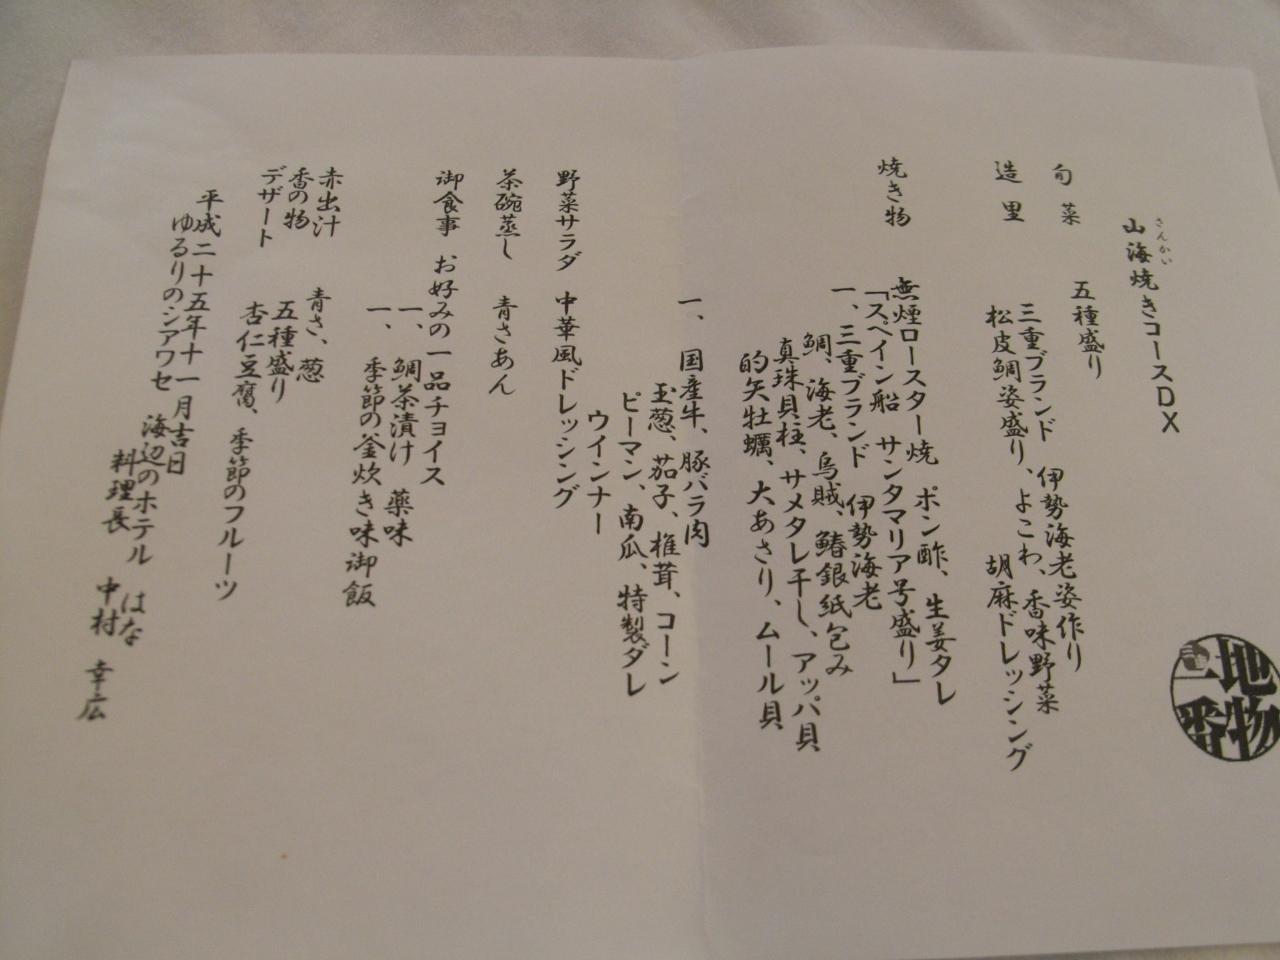 地物
一番
さんかい
山海焼きコースDX
旬菜 五種盛り
三重ブランド 伊勢海老姿作り
造里 松皮鯛姿盛り、よこわ、香味野菜
胡麻ドレッシング
焼き物 無煙ロースター焼 ポン酢、生姜タレ
「スペイン船 サンタマリア号盛り」
一、三重ブランド 伊勢海老
鯛、海老、烏賊、鰆銀紙包み
真珠貝柱、サメタレ干し、アッパ貝
的矢牡蠣、大あさり、ムール貝
一、国産牛、豚バラ肉
玉葱、茄子、椎茸、コーン
ピーマン、南瓜、特製ダレ
ウインナー
野菜サラダ 中華風ドレッシング
茶碗蒸し 青さあん
御食事 お好みの一品チョイス
一、鯛茶漬け 薬味
一、季節の釜炊き味御飯
赤出汁 青さ、葱
香の物 五種盛り
デザート 杏仁豆腐、季節のフルーツ
平成二十五年十一月吉日
ゆるりのシアワセ 海辺のホテル はな
料理長 中村 幸広